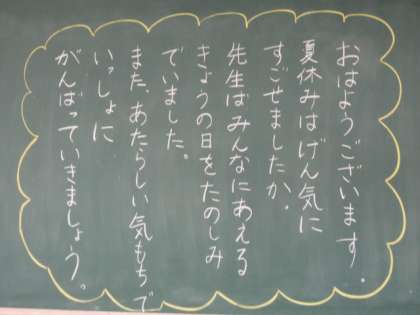 おはようございます。
夏休みはげん気に
すごせましたか。
先生はみんなにあえる
きょうの日をたのしみ
でいました。
また、あたらしい気もちで
いっしょに
がんばっていきましょう。